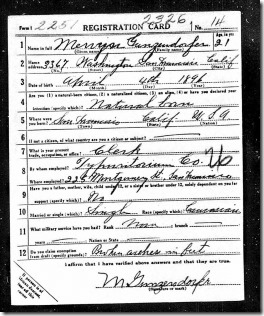 Form 1 2251 2326 No. 14
REGISTRATION CARD
1 Name in full Gunzendorfer Age, in yrs. 21
(Given name) (Family name)
2 Home address 3367 Washington San Francisco Calif
(No.) (Street) (City) (State)
3 Date of birth April 4th 1896
(Month) (Day) (Year)
4 Are you (1) a natural-born citizen, (2) a naturalized citizen, (3) an alien, (4) or have you declared your intention (specify which)? Natural born
5 Where were you born? San Francisco Calif. U.S.A
(Town) (State) (Nation)
6 If not a citizen, of what country are you a citizen or subject?
7 What is your present trade, occupation, or office? Clerk
8 By whom employed? Co.
Where employed? Montgomery St. San Francisco
9 Have you a father, mother, wife, child under 12, or a sister or brother under 12, solely dependent on you for support (specify which)? No
10 Married or single (which)? Single Race (specify which)? Caucasian
11 What military service have you had? Rank None branch
years Nation or State
12 Do you claim exemption from draft (specify grounds)? Broken arches in feet
I affirm that I have verified above answers and that they are true.
M Gunzendorfer
(Signature or mark)